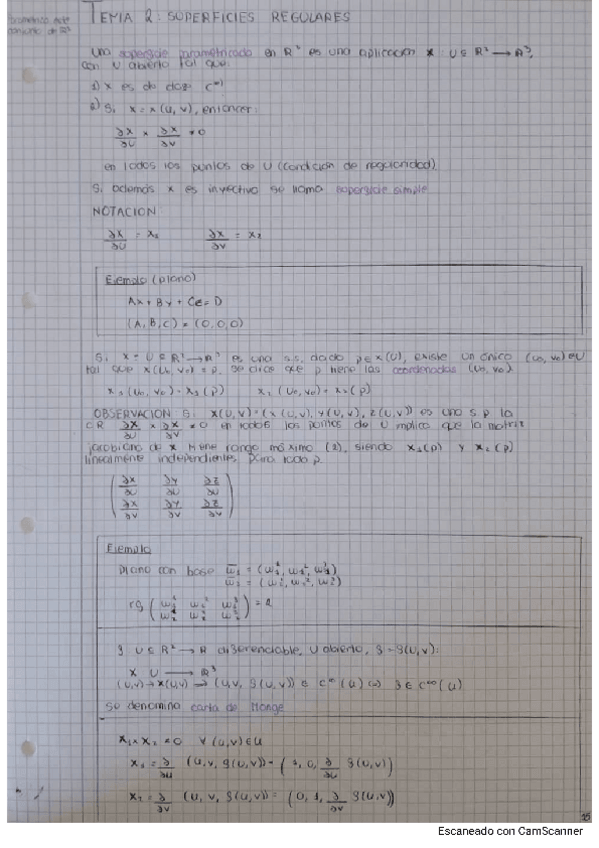 TEMA 2: SUPERFICIES REGULARES
conjunto de R³
Una superficie parametrizada en R³ es una aplicación x: U ⊆ R² → R³,
con U abierto tal que:
1) x es de clase C^∞
2) Si x = x(u,v), entonces:
∂x/∂u × ∂x/∂v ≠ 0
en todos los puntos de U (condición de regularidad)
Si además x es inyectiva se llama superficie simple
NOTACION:
∂x/∂u = x₁ ∂x/∂v = x₂
Ejemplo (plano)
Ax + By + Cz = D
(A, B, C) ≠ (0,0,0)
Si x = U ⊆ R² → R³ es una s.s, dado p ∈ x(U), existe un único (u₀, v₀) ∈ U
tal que x(u₀, v₀) = p. Se dice que p tiene las coordenadas (u₀, v₀)
x₁(u₀, v₀) = x₁(p) x₂(u₀, v₀) = x₂(p)
OBSERVACION Si x(u,v) = (x(u,v), y(u,v), z(u,v)) es una s.p la
CR ∂x/∂u × ∂x/∂v ≠ 0 en todos los puntos de U implica que la matriz
jacobiana de x tiene rango máximo (2), siendo x₁(p) y x₂(p)
linealmente independientes para todo p.
( ∂x/∂u ∂y/∂u ∂z/∂u )
( ∂x/∂v ∂y/∂v ∂z/∂v )
Ejemplo
plano con base
rg = 2
f U ⊆ R² → R diferenciable, U abierto, f = f(u,v):
x U → R³
(u,v) → x(u,v) → (u,v, f(u,v)) ∈ C^∞(U) ⇔ f ∈ C^∞(U)
Se denomina carta de Monge
x₁ × x₂ ≠ 0 ∀ (u,v) ∈ U
x₁ = ∂/∂u (u,v, f(u,v)) = (1, 0, ∂/∂u f(u,v))
x₂ = ∂/∂v (u, v, f(u,v)) = (0, 1, ∂/∂v f(u,v))
Escaneado con CamScanner